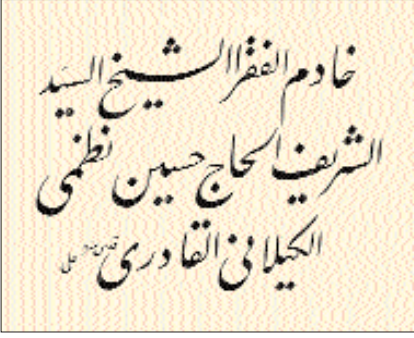 خادم الفقرا الشيخ السيد
الشريف الحاج حسين نظمى
الكيلانى القادرى